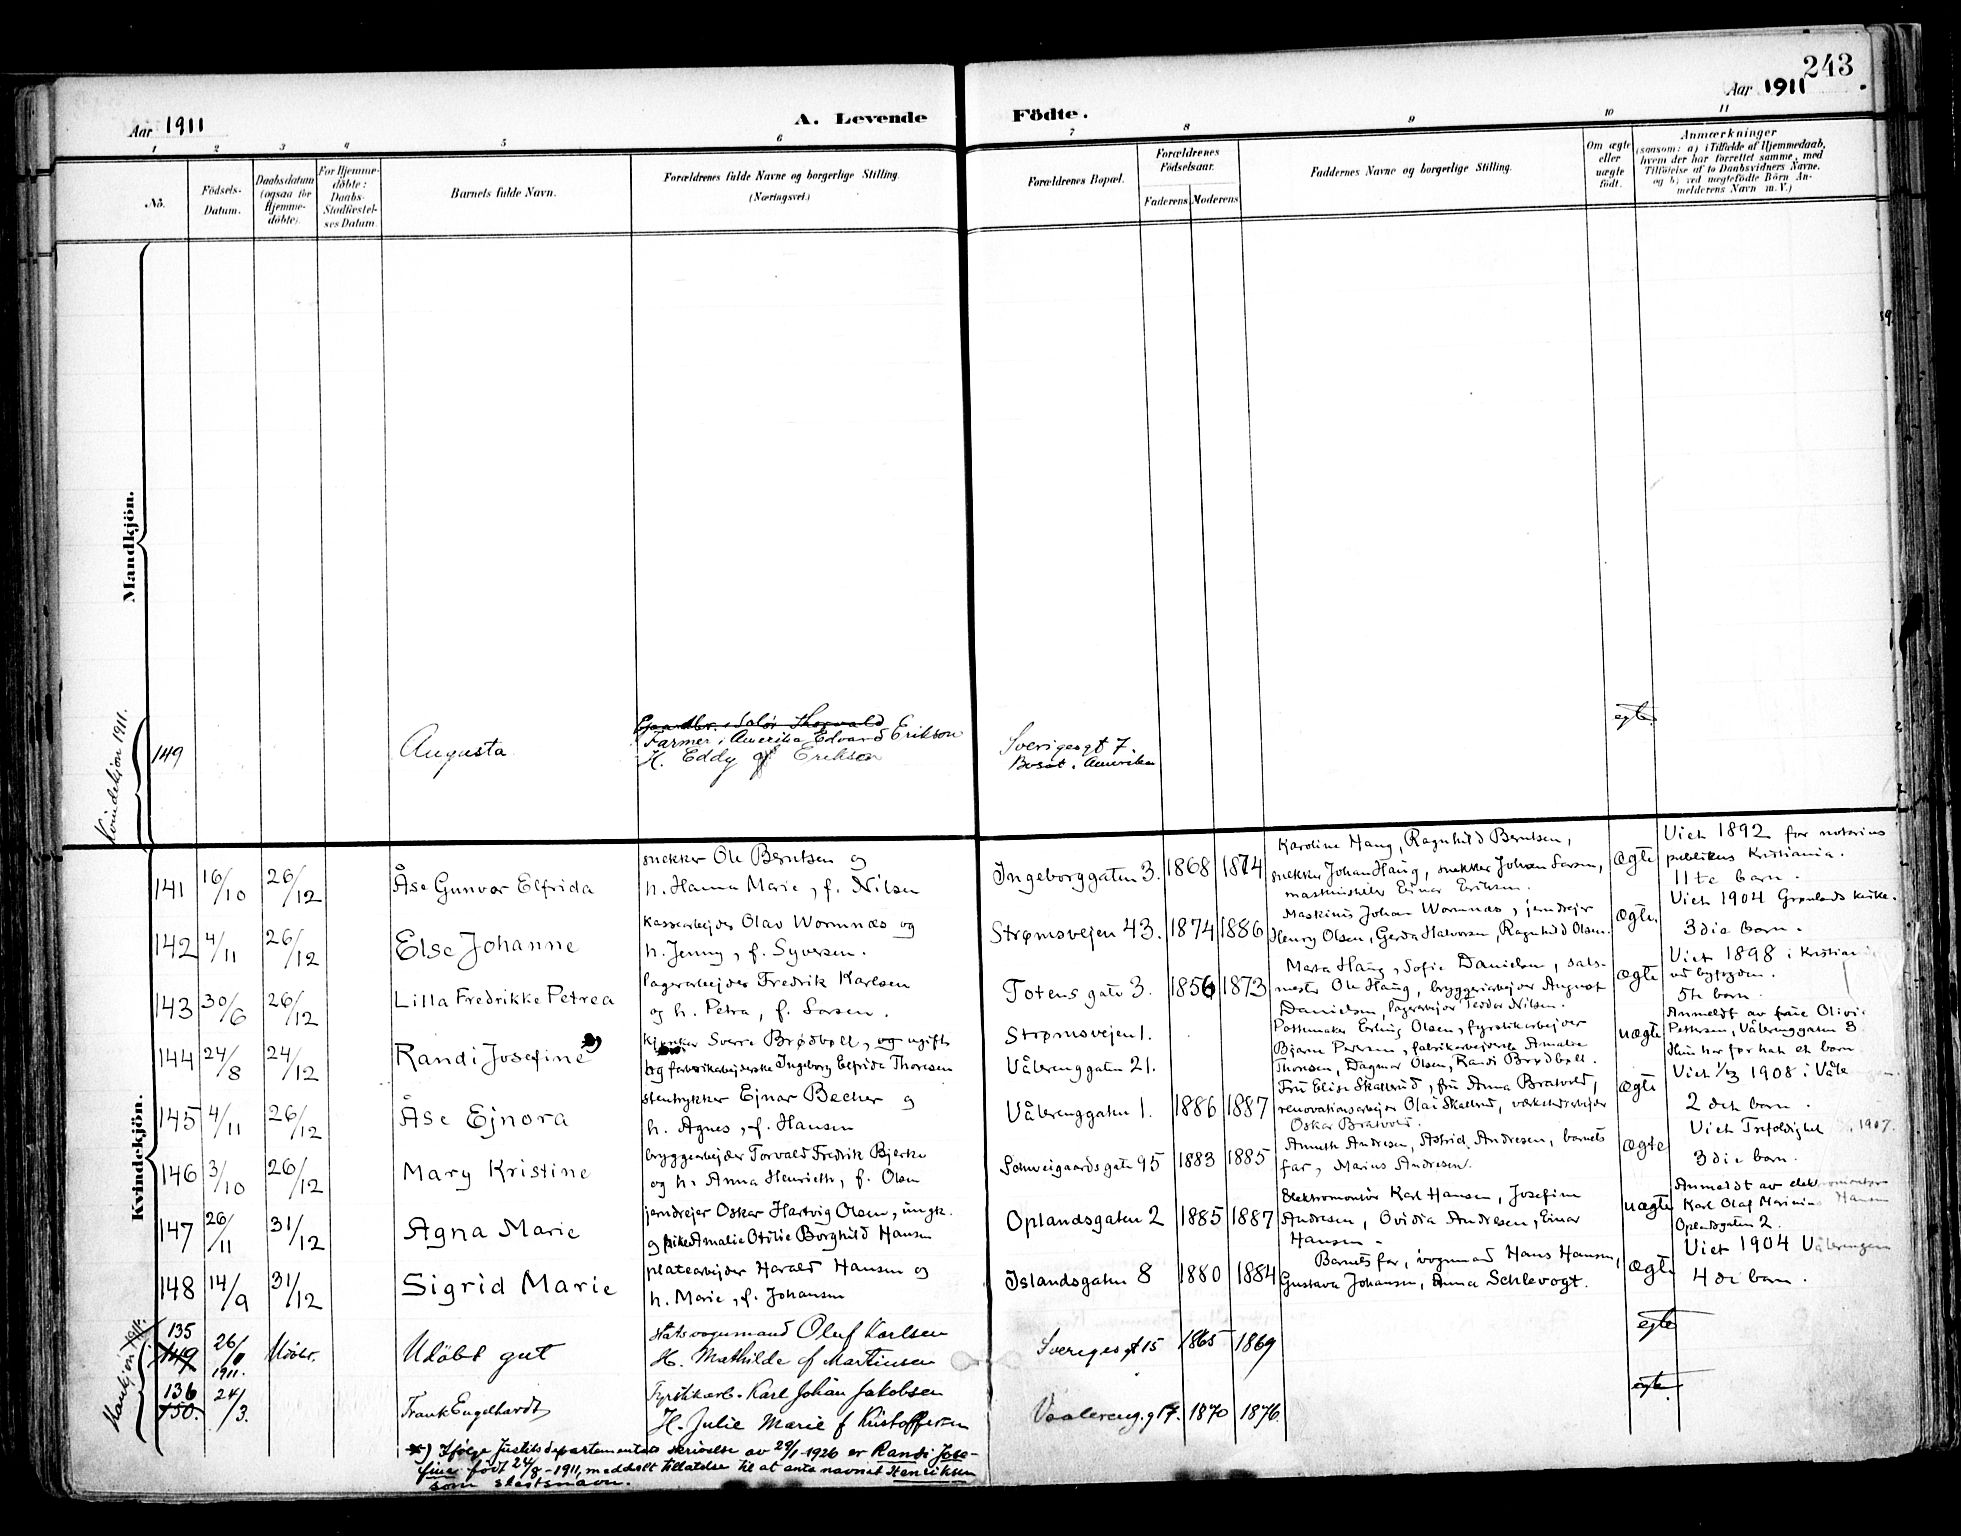 243
Aar 1911
A. Levende Födte.
Aar 1911
1 2 3 4 5 6 7 8 9 10 11
No.
Födsels-Datum.
Daabsdatum (ogsaa for Hjemmedöbte).
For Hjemmedöbte: Daabs-Stadfæstelses Datum.
Barnets fulde Navn.
Forældrenes fulde Navne og borgerlige Stilling. (Næringsvei.)
Forældrenes Bopæl.
Forældrenes Födselsaar.
Faderens Moderens
Faddernes Navne og borgerlige Stilling.
Om ægte eller uægte födt.
Anmærkninger
(saasom: a) i Tilfælde af Hjemmedaab, hvem der har forrettet samme, med Tilföielse af to Daabsvidners Navne, og b) ved uægtefödte Börn Anmelderens Navn m. V.)
Mandkjön.
Kvindekjön 1911.
149 Augusta
Farmer i Amerika Edvard Erikson
H. Eddy f Erikson
Sverigesgt 7.
Bosat i Amerika
egte
Kvindekjön.
141 16/10 26/12 Åse Gunvor Elfrida
snekker Ole Berntsen og
h. Hanna Marie, f. Nilsen
Ingeborggaten 3. 1868 1874
Karoline Haug, Ragnhild Berntsen,
snekker Johan Haug, snekker Johan Larsen,
Einar Eriksen.
ægte
Viet 1892 for notarius
publikus Kristiania.
11te barn.
142 4/11 26/12 Else Johanne
Olav Wormnæs og
h. Jenny, f. Syversen.
Strømsvejen 43. 1874 1886
Maskinis Johan Wormnæs, jerndrejer
Henry Olsen, Gerda Halvorsen, Ragnhild Olsen.
ægte.
Viet 1904 Grønlands kirke.
3die barn.
143 30/6 26/12 Lilla Fredrikke Petrea
lagerarbejder Fredrik Karlsen
og h. Petra, f. Larsen.
Totens gate 3. 1856 1873
Marta Haug, Sofie Danielsen, sals-
mester Ole Haug, bryggeriarbejder August
Danielsen, lagerarbejder Teodor Nilsen.
ægte
Viet 1898 i Kristiania
ved byfogden.
5te barn.
144 24/8 24/12 Randi Josefine *)
Sverre Brødbøll, og ugifte
og fabrikarbejderske Ingeborg Elfrida Thoresen
Strømsvejen 1.
Vålerenggaten 21.
Pottemaker Erling Olsen, fyrstikarbejder
Bjarne Petersen, fabrikarbejderske Amalie
Thoresen, Dagmar Olsen, Randi Brødbøll.
uægte
Anmeldt av frue Olivia
Pettersen, Vålerenggaten 3
Hun har før hat et barn
145 4/11 26/12 Åse Ejnora
stentrykker Ejnar Becher og
h. Agnes, f. Hansen
Vålerenggaten 1. 1886 1887
Fru Elise Skallerud, fru Anna Bratvold,
renovationsarbejder Olai Skallerud, værkstedsarbejder
Oskar Bratvold.
ægte
Viet 1/3 1908 i Våle
2 det barn.
146 3/10 26/12 Mary Kristine
bryggearbejder Torvald Fredrik Bjerke
og h. Anna Henriette, f. Olsen
Schweigaardsgate 95 1883 1885
Annette Andresen, Astrid Andresen, barnets
far, Marius Andresen.
ægte
Viet Trefoldighet 1907.
3die barn.
147 26/11 31/12 Agna Marie
jerndrejer Oskar Hartvig Olsen, ungk.
og pike Amalie Otilie Borghild Hansen
Oplandsgaten 2 1885 1887
Elektromontør Karl Hansen, Josefine
Andresen, Ovidia Andresen, Einar
Hansen.
uægte
Anmeldt av elektromontør
Karl Olaf Marinius Hansen
Oplandsgaten 2.
148 14/9 31/12 Sigrid Marie
platearbejder Harald Hansen og
h. Marie, f. Johansen
Islandsgaten 8 1880 1884
Barnets far, vognmand Hans Hansen,
Gustava Johansen, Anna Schlevogt.
ægte
Viet 1904 Vålerengen
4 de barn.
135
149 26/ 1911. Udöbt. Udöbt gut
Oluf Karlsen
H. Mathilde f Martinsen
Sverigesgt 15 1865 1869
egte
136
150. 24/3. Frank Engelhardt
Fyrstikarb. Karl Johan Jakobsen
H. Julie Marie f Kristoffersen
Vaalereng.g 17. 1870 1876.
egte
*) Ifølge Justitsdepartementets skrivelse av 29/1-1926 er Randi Jose-
fine født 24/8-1911, meddelt tillatelse til at anta navnet Henriksen
som slektsnavn.